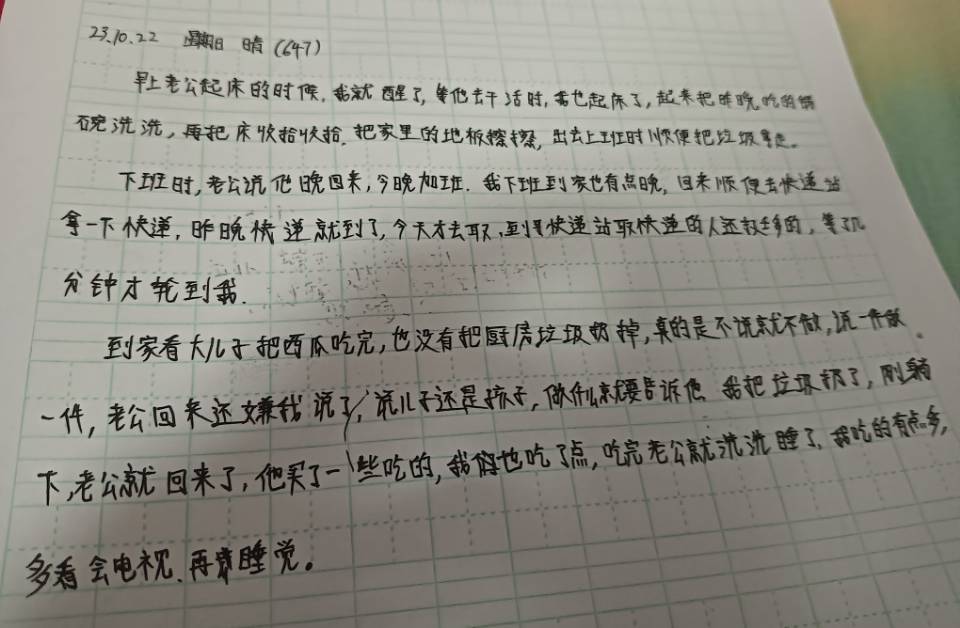 23.10.22 星期日 晴 (647)
早上老公起床的时候,我就醒了,等他去干活时,我也起床了,起来把昨晚吃的锅
碗洗洗,再把床收拾收拾.把家里的地板擦擦,出去上班时顺便把垃圾拿走。
下班时,老公说他晚回来,今晚加班.我下班到家也有点晚,回来顺便去快递站
拿一下快递,昨晚快递就到了,今天才去取,到快递站取快递的人还挺多的,等了几
分钟才轮到我.
到家看大儿子把西瓜吃完,也没有把厨房垃圾扔掉,真的是不说就不做,说一件做
一件,老公回来还嫌我说了,说儿子还是孩子,做什么就要告诉他.我把垃圾扔了,刚躺
下,老公就回来了,他买了一些吃的,我俩也吃了点,吃完老公就洗洗睡了.我吃的有点多,
多看会电视.再睡觉。